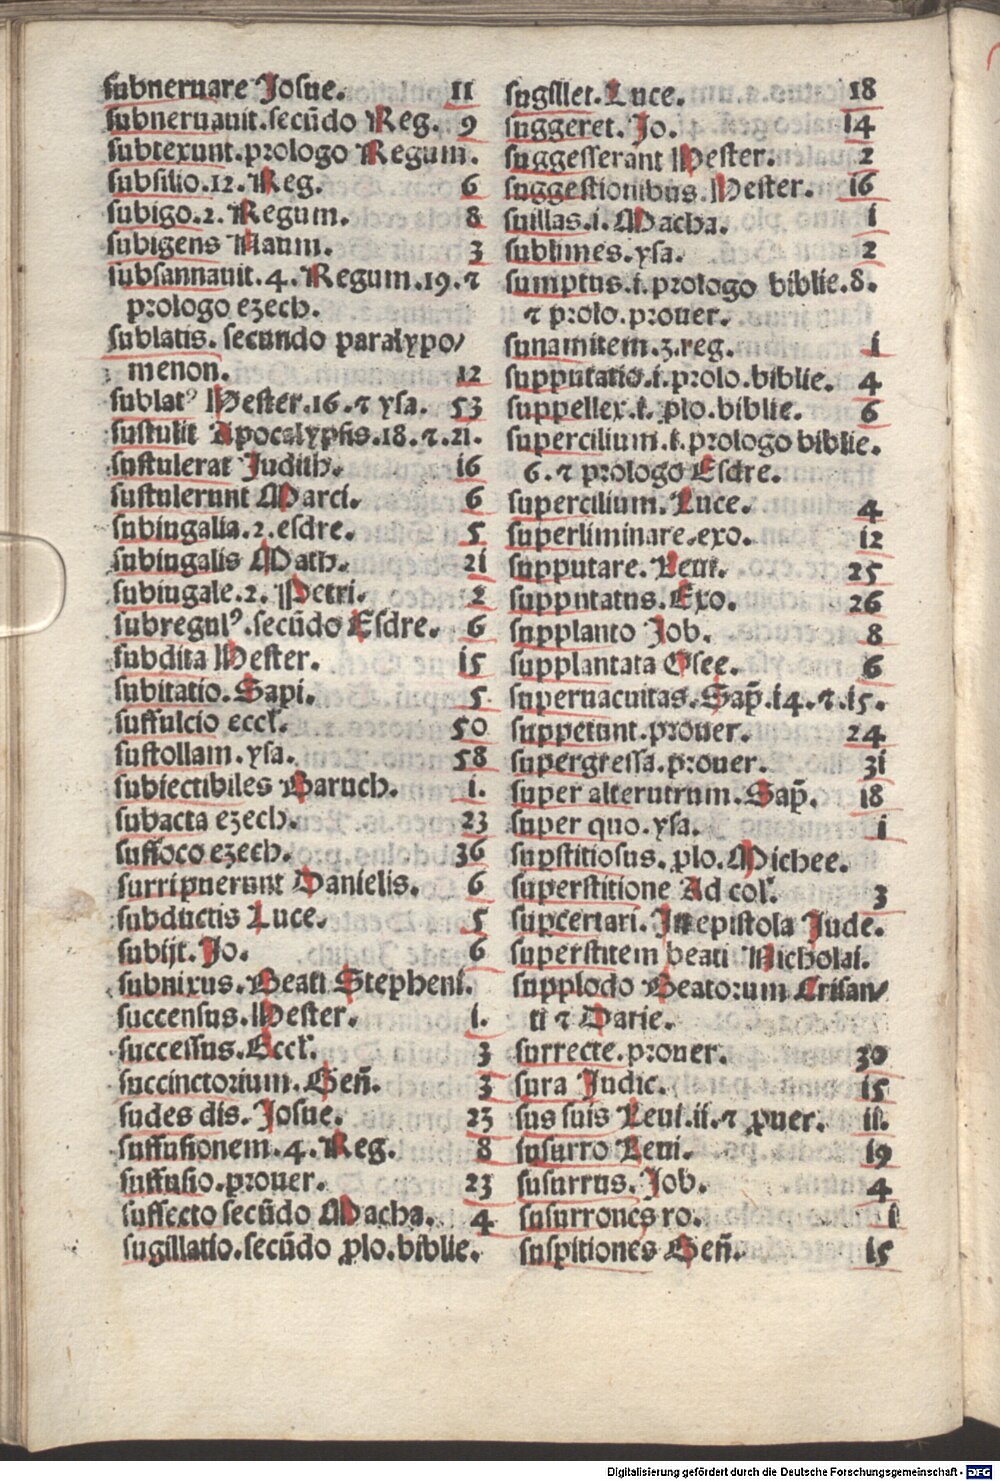 subneruare Josue. 11
subneruauit.secũdo Reg. 9
subtexunt.prologo Regum.
subsilio.12.Reg. 6
subigo.2.Regum. 8
subigens Naum. 3
subsannauit.4.Regum.19.⁊
prologo ezech.
sublatis.secundo paralypo/
menon. 12
sublatꝰ Hester.16.⁊ ysa. 53
sustulit Apocalypsis.18.⁊.21.
sustulerat Judith. i6
sustulerunt Marci. 6
subiugalia.2.esdre. 5
subiugalis Math. 2i
subiugale.2.Petri. 2
subregulꝰ.secũdo Esdre. 6
subdita Hester. i5
subitatio.Sapi. 5
suffulcio eccl'. 50
sustollam.ysa. 58
subiectibiles Baruch. i.
subacta ezech. 23
suffoco ezech. 36
surripuerunt Danielis. 6
subductis Luce. 5
subijt.Jo. 6
subnixus.Beati Stepheni.
succensus.Hester. i.
successus.Eccl'. 3
succinctorium.Geñ. 3
sudes dis.Josue. 23
suffusionem.4.Reg. 8
suffusio.prouer. 23
suffecto secũdo Macha. 4
sugillatio.secũdo ꝓlo.biblie.
sugillet.Luce. 18
suggeret.Jo. 14
suggesserant Hester. 2
suggestionibus.Hester. i6
suillas.i.Macha. i
sublimes.ysa. 2
sumptus.i.prologo biblie.8.
⁊ prolo.prouer.
sunamitem.3.reg. i
supputatio.i.prolo.biblie. 4
suppellex.i.ꝓlo.biblie. 6
supercilium.i.prologo biblie.
6.⁊ prologo Esdre.
supercilium.Luce. 4
superliminare.exo. i2
supputare.Leui. 25
supputatus.Exo. 26
supplanto Job. 8
supplantata Osee. 6
superuacuitas.Sap̃.i4.⁊.i5.
suppetunt.prouer. 24
supergressa.prouer. 3i
super alterutrum.Sap̃. i8
super quo.ysa. i
suꝑstitiosus.ꝓlo.Michee.
superstitione Ad col'. 3
suꝑcertari.In epistola Jude.
superstitem beati Nicholai.
supplodo Beatorum Crisan/
ti ⁊ Darie.
surrecte.prouer. 30
sura Judic. i5
sus suis Leui.ii.⁊ ꝓuer. ii.
susurro Leui. i9
susurrus.Job. 4
susurrones ro. i
suspitiones Geñ. i5
Digitalisierung gefördert durch die Deutsche Forschungsgemeinschaft - DFG